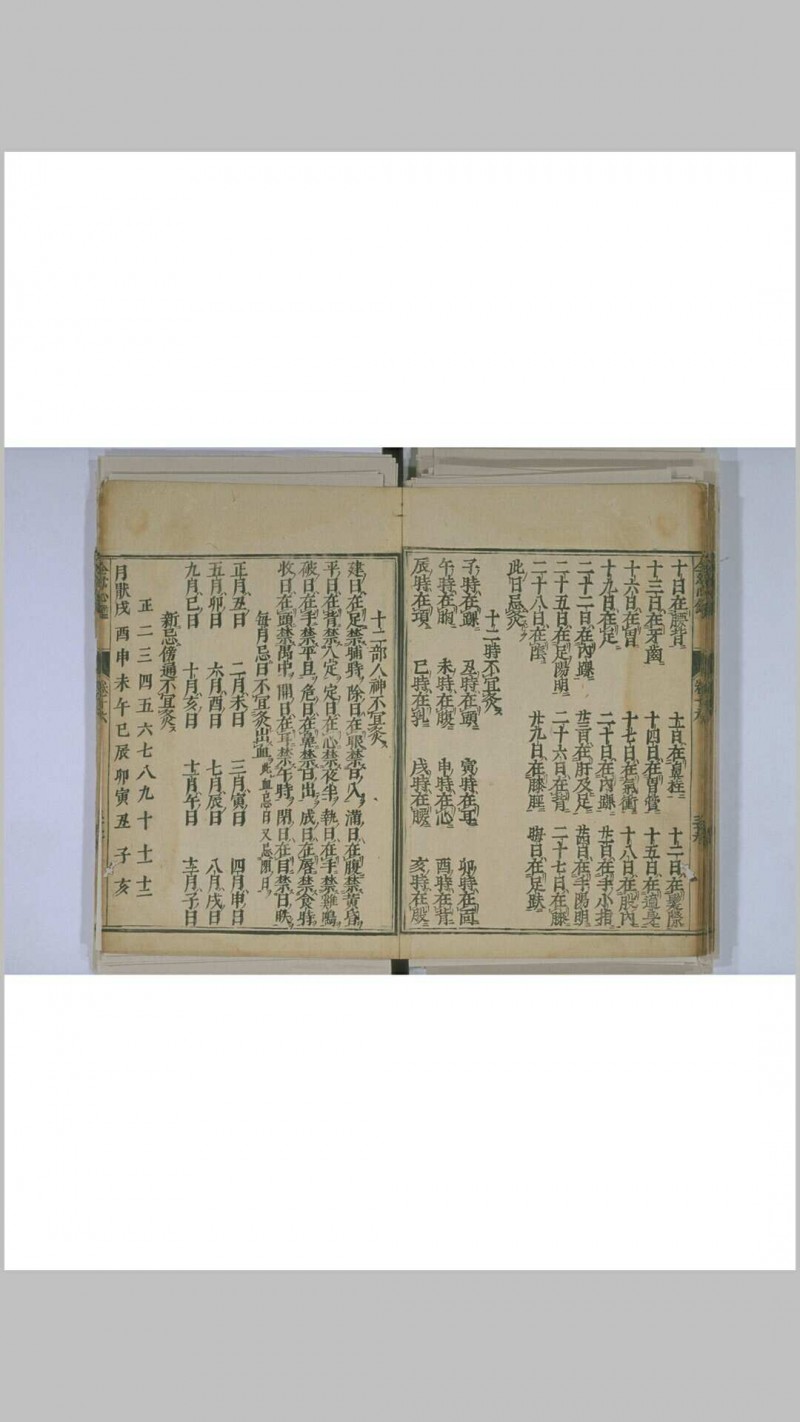 十日在腰背 十一日在鼻柱 十二日在髮際
十三日在牙齒 十四日在胃管 十五日在遍身
十六日在胃 十七日在氣衝 十八日在股內
十九日在足 二十日在內踝
二十二日在內踝 廿三日在肝及足 廿四日在手陽明
二十五日在足陽明 二十六日在背 二十七日在膝
二十八日在陰 廿九日在膝脛 晦日在足趺
此日忌灸
十二時不宜灸
子時在踝 丑時在頭 寅時在耳 卯時在面
午時在胸 未時在腹 申時在心 酉時在背
辰時在項 巳時在乳 戌時在腰 亥時在股
十二部人神不宜灸
建日在足禁晡時 除日在眼禁日入 滿日在腹禁黃昏
平日在背禁人定 定日在心禁夜半 執日在手禁雞鳴
破日在手禁平旦 危日在鼻禁日出 成日在唇禁食時
收日在頭禁禺中 開日在耳禁午時 閉日在目禁日昳
每月忌日不宜灸出血 此血忌日又忌
正月丑日 二月未日 三月寅日 四月申日
五月卯日 六月酉日 七月辰日 八月戌日
九月巳日 十月亥日 十一月午日 十二月子日
新忌傍通不宜灸
正 二 三 四 五 六 七 八 九 十 十一 十二
月猒戌 酉 申 未 午 巳 辰 卯 寅 丑 子 亥